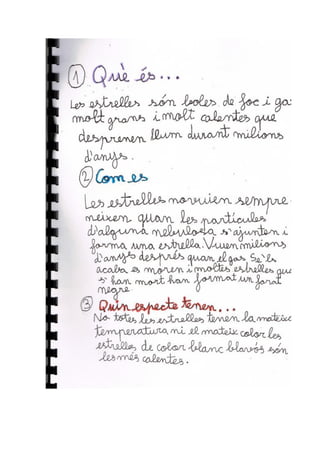 ① Què és...
Les estrelles són boles de foc i ga
molt grans i molt calentes que
desprenen llum durant milions
d'anys.
② Com es
Les estrelles no viuen sempre.
neixen quan les partícules
d'alguna nebulosa s'ajunten i
forma una estrella. Viuen milions
d'anys després quan el gas Se'ls
acaba es moren i moltes estrelles que
s'han mort han format un forat
negre.
③ Quin aspecte tenen...
No totes les estrelles tenen la mateixa
temperatura ni el mateix color les
estrelles de color blanc blavós són
les més calentes.